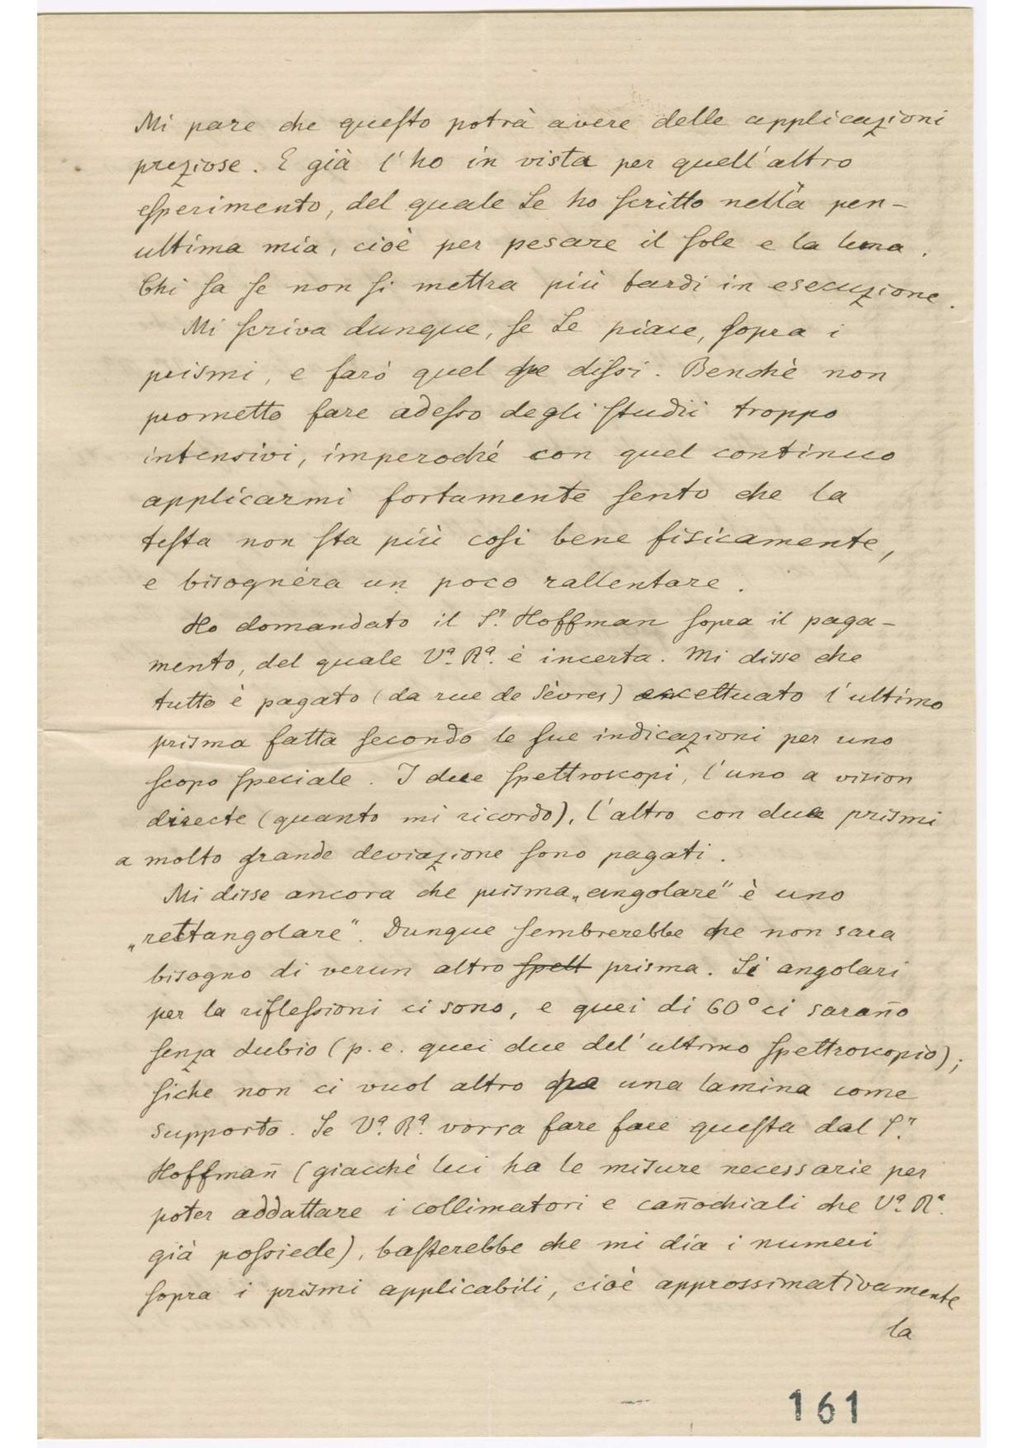 Mi pare che questo potrà avere delle applicazioni
preziose. E già l'ho in vista per quell'altro
esperimento, del quale Le ho scritto nella pen-
ultima mia, cioè per pesare il sole e la luna.
Chi sa se non si mettra più tardi in esecuzione.
Mi scriva dunque, se Le piace, sopra i
prismi, e farò quel che dissi. Benchè non
prometto fare adesso degli studii troppo
intensivi, imperochè con quel continuo
applicarmi fortamente sento che la
testa non sta più cosi bene fisicamente,
e bisognera un poco rallentare.
Ho domandato il Sr. Hoffman sopra il paga-
mento, del quale Va. Ra. è incerta. Mi disse che
tutto è pagato (da rue de Sèvres) excettuato l'ultimo
prisma fatta secondo le sue indicazioni per uno
scopo speciale. I due spettroscopi, l'uno a vision
directe (quanto mi ricordo), l'altro con due prismi
a molto grande deviazione sono pagati.
Mi disse ancora che prisma „angolare" è uno
„rettangolare". Dunque sembrerebbe che non sara
bisogno di verun altro spett prisma. Li angolari
per la riflessioni ci sono, e quei di 60° ci sarano
senza dubio (p. e. quei due del' ultimo spettroscopio);
siche non ci vuol altro che una lamina come
supporto. Se Va. Ra. vorra fare fare questa dal Sr.
Hoffman (giacchè lui ha le misure necessarie per
poter addattare i collimatori e canochiali che Va. Ra.
già possiede), basterebbe che mi dia i numeri
sopra i prismi applicabili, cioè approssimativamente
la
161